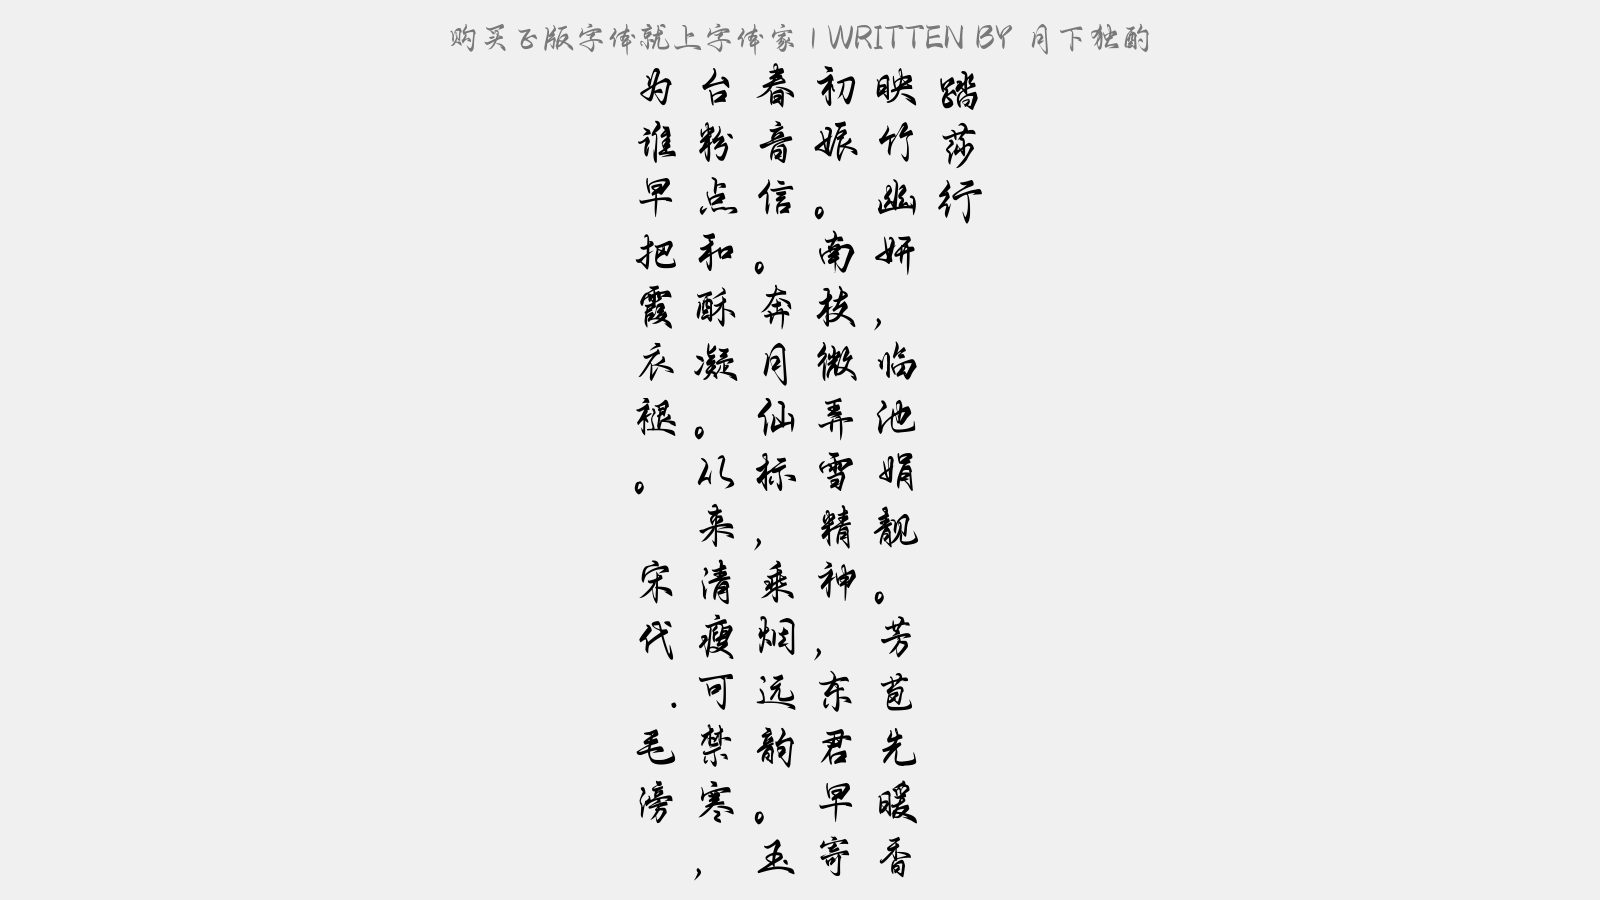 购买正版字体就上字体家 | WRITTEN BY 月下独酌
踏莎行
映竹幽妍，临池娟靓。芳苞先暖香
初娠。南枝微弄雪精神，东君早寄
春音信。奔月仙标，乘烟远韵。玉
台粉点和酥凝。从来清瘦可禁寒，
为谁早把霞衣褪。 宋代.毛滂